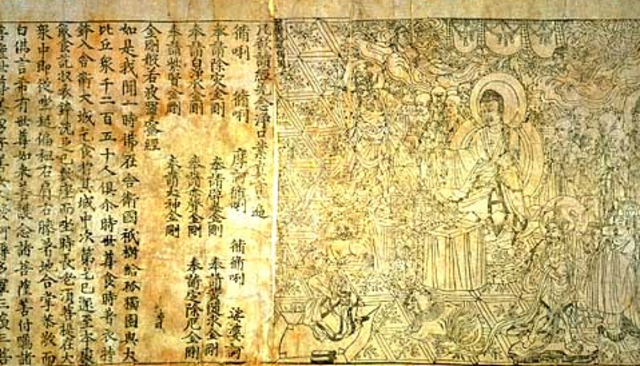 凡欲讀經先念淨口業真言一遍
脩唎 脩唎 摩訶脩唎 脩脩唎 娑婆訶
奉請除灾金剛 奉請辟毒金剛 奉請黃隨求金剛
奉請白淨水金剛 奉請赤聲金剛 奉請定除厄金剛
奉請紫賢金剛 奉請大神金剛
金剛般若波羅蜜經
如是我聞一時佛在舍衛國祇樹給孤獨園與大
比丘衆千二百五十人俱尒時世尊食時著衣持
鉢入舍衛大城乞食於其城中次第乞已還至本處
飯食訖收衣鉢洗足已敷座而坐時長老須菩提在大
衆中即從座起偏袒右肩右膝著地合掌恭敬而
白佛言希有世尊如來善護念諸菩薩善付囑諸